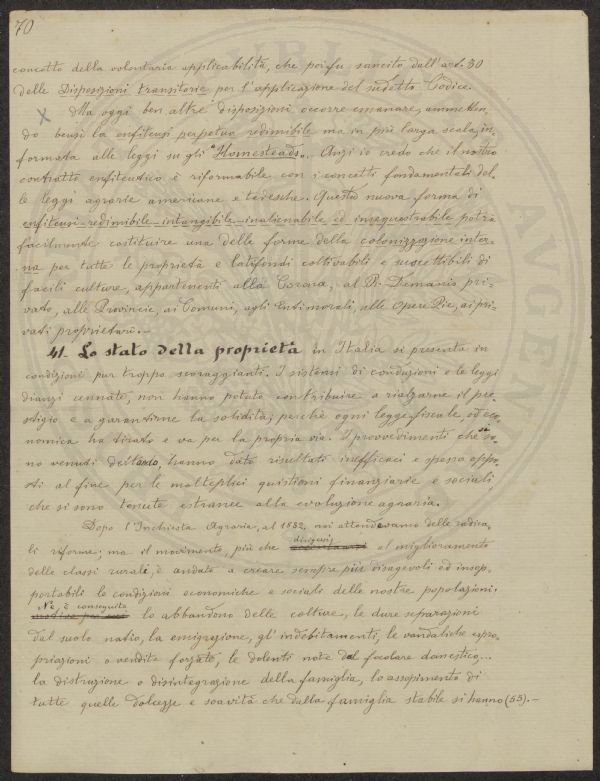 70
concetto della volontaria applicabilità, che poi fu sancito dall'art. 30
delle Disposizioni transitorie per l'applicazione del sudetto Codice.
Ma oggi ben altre disposizioni occorre emanare, ammetten-
do bensì la enfiteusi perpetua redimibile ma in più larga scala, in-
formata alle leggi su gli "Homesteads". Anzi io credo che il nostro
contratto enfiteutico è riformabile con i concetti fondamentali del-
le leggi agrarie americane e tedesche. Questa nuova forma di
enfiteusi-redimibile-intangibile-inalienabile ed insequestrabile potrà
facilmente costituire una delle forme della colonizzazione inter-
na per tutte le proprietà e latifondi coltivabili e suscettibili di
facili culture, appartenenti alla Corona, al R. Demanio pri-
vato, alle Provincie, ai Comuni, agli Enti morali, alle Opere Pie, ai pri-
vati proprietari.—
41- Lo stato della proprietà in Italia si presenta in
condizioni pur troppo scoraggianti. I sistemi di conduzioni e le leggi
dianzi cennate, non hanno potuto contribuire a rialzarne il pre-
stigio e a garantirne la solidità; perchè ogni legge fiscale, od eco-
nomica ha tirato e va per la propria via. I provvedimenti che so-
no venuti dettando, hanno dato risultati inefficaci e spesso oppo-
sti al fine per le molteplici quistioni finanziarie e sociali,
che si sono tenute estranee alla evoluzione agraria.
Dopo l'Inchiesta Agraria, al 1882, noi attendevamo delle radica-
li riforme; ma il movimento, più che dirigersi al miglioramento
delle classi rurali, è andato a creare sempre più disagevoli ed insop-
portabili le condizioni economiche e sociali delle nostre popolazioni.
Ne è conseguito lo abbandono delle colture, le dure separazioni
dal suolo natio, la emigrazione, gl'indebitamenti, le vandaliche espro-
priazioni o vendite forzate, le dolenti note del focolare domestico...
la distruzione o disintegrazione della famiglia, lo assopimento di
tutte quelle dolcezze e soavità che dalla famiglia stabile si hanno (53).—